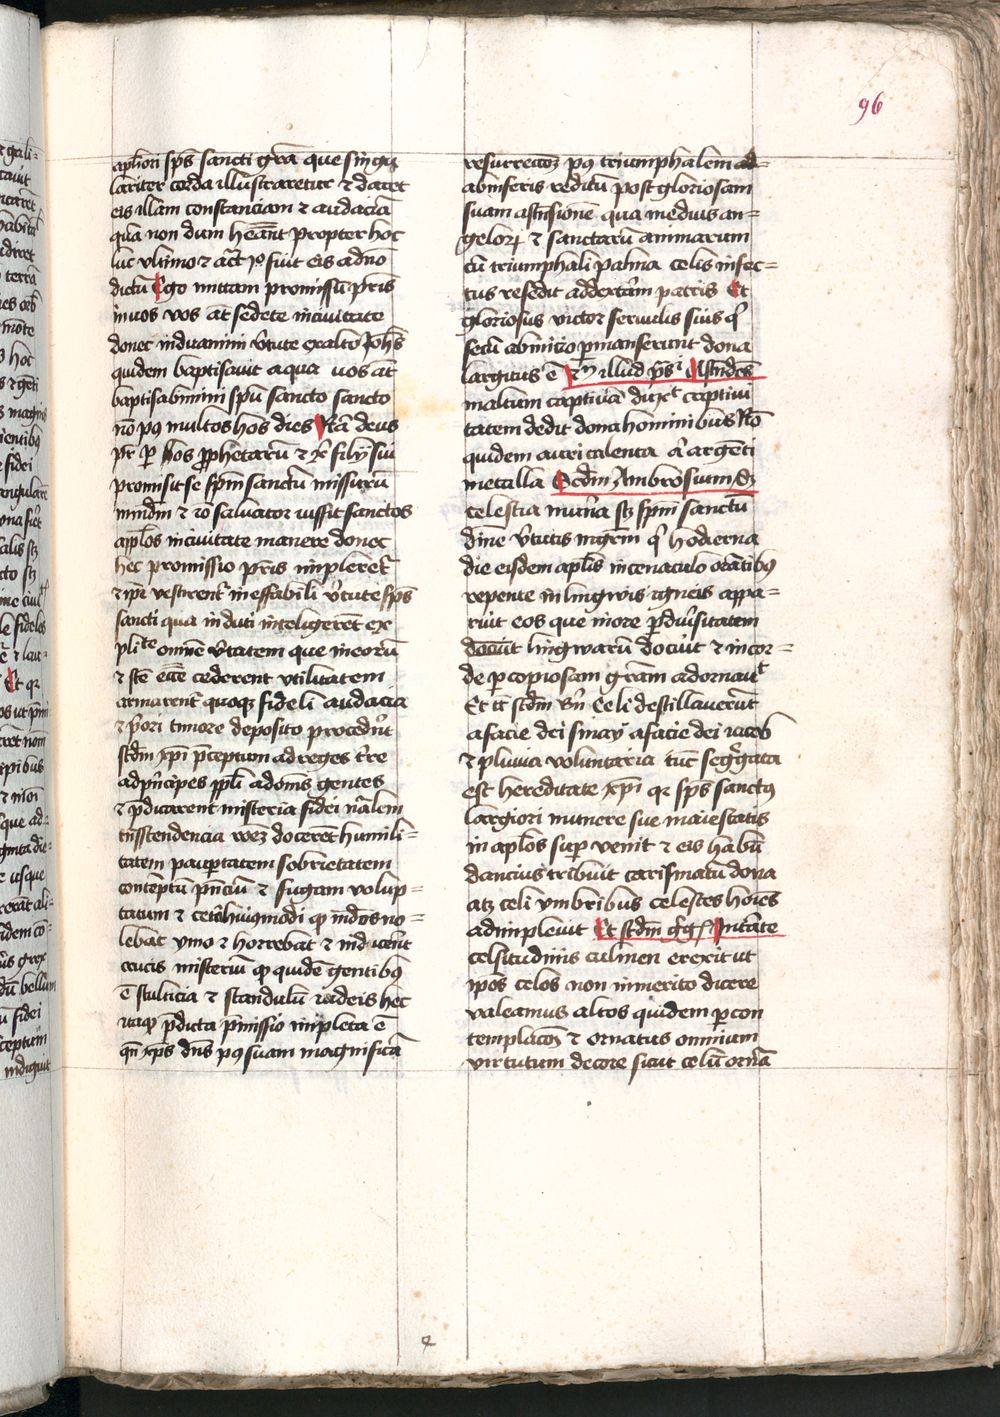 96
aplior spūs sancti grā que singu
lariter corda illustraretur & daret
eis illam constanciam & audaciā
quā non dum hēānt propter hoc
luc vltimo & act̄ 1o fuit eis adno
dictū Ego mittam promissū pris
in vos vos āt sedete in ciuitate
donec induamini v̄tute ex alto Johēs
quidem baptisauit aqua uos āt
baptisabimini spū sancto sancto
nō pꝰ multos hos dies Nā deus
pr̄ ꝑ hos ꝓphetarū & ꝑ filij sui
promisit se spm̄ sanctū missurū
mūdm̄ & iō saluator iussit sanctos
aplōs in ciuitate manere donec
hec promissio pris impleret̄
& ip̄i vestirent̄ in effabili v̄tute spūs
sancti qua induti intelligerēt ex
plite omnē v̄itatem que in eorū
& stē eccē cederent vtilitatem
armarent̄ quoqꝫ fideli audacia
& p̄ori timore deposito procedēt
scdm̄ xp̄i p̄ceptum ad reges t̄re
ad p̄ncipes ppl̄i ad om̄s gentes
& p̄dicarent misteria fidei nālem
transcendencia
docerēt humili-
tatem paupertatem sobrietatem
contēptū & fugam volup-
tatum & cetera huiusmodi
lebāt ymo & horrebāt &
crucis misteriū qd̄ quidē gentibꝰ
ē stulticia & scandalū iudeis hec
itaqꝫ p̄dicta p̄missio impleta ē
qn̄ xp̄s dn̄s pꝰ suam magnificā
resurrectōꝫ pꝰ triumphalem ad-
ab inferis reditū post gloriosam
suam ascensionē qua medius an-
gelorꝫ & sanctarū animarum
cū triumphali palma celis infec-
tus resedit ad dextrām patris Et
gloriosus victor seruulis suis qͥ
secū ab inicio ꝑmanserunt dona
largitus ē illud psͥ Ascendēs
in altum captiuā duxͭ captiui
tatem dedit dona hominibus Nō
quidem auri talenta a͛ argēti
metalla Scdm̄ Ambrosium sꝫ
celestia mun̄a sꝫ spm̄ sanctū
diīne v̄tutis mgrm̄ qͥ hodierna
die eisdem aplīs in cenaculo orātibꝰ
repente in lingwis igneis appa-
ruit eos que more ꝑ diu̓sitatem
docuit lingwarū docuit & in cor-
de ꝑ copiosam grām adornauͭ
Et tc̄ scdm̄ Celi destillauerūt
a facie dei sinay a facie dei iacob
& pluuia voluntaria tūc seg̓gata
est hereditate xp̄i qꝛ spūs sanctus
largiori munere sue maiestatis
in aplōs superuenit & eis habū
dancius tribuit carismatū dona
atqꝫ celi ymbribus celestes hoīes
adimpleuit Et scdm̄ Greg
celsitudinis culmen erexit ut
ip̄os celos non immerito dicere
valeamus altos quidem ꝑ con
templacōꝫ & ornatus omnium
virtutum decore sicut celū ornā